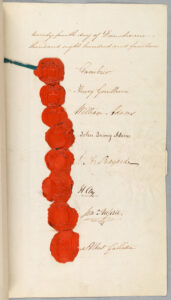 twenty fourth day of December one
thousand eight hundred and fourteen
Gambier
Henry Goulburn
William Adams
John Quincy Adams
J. A. Bayard
H. Clay
Jon.ª Russell
Albert Gallatin